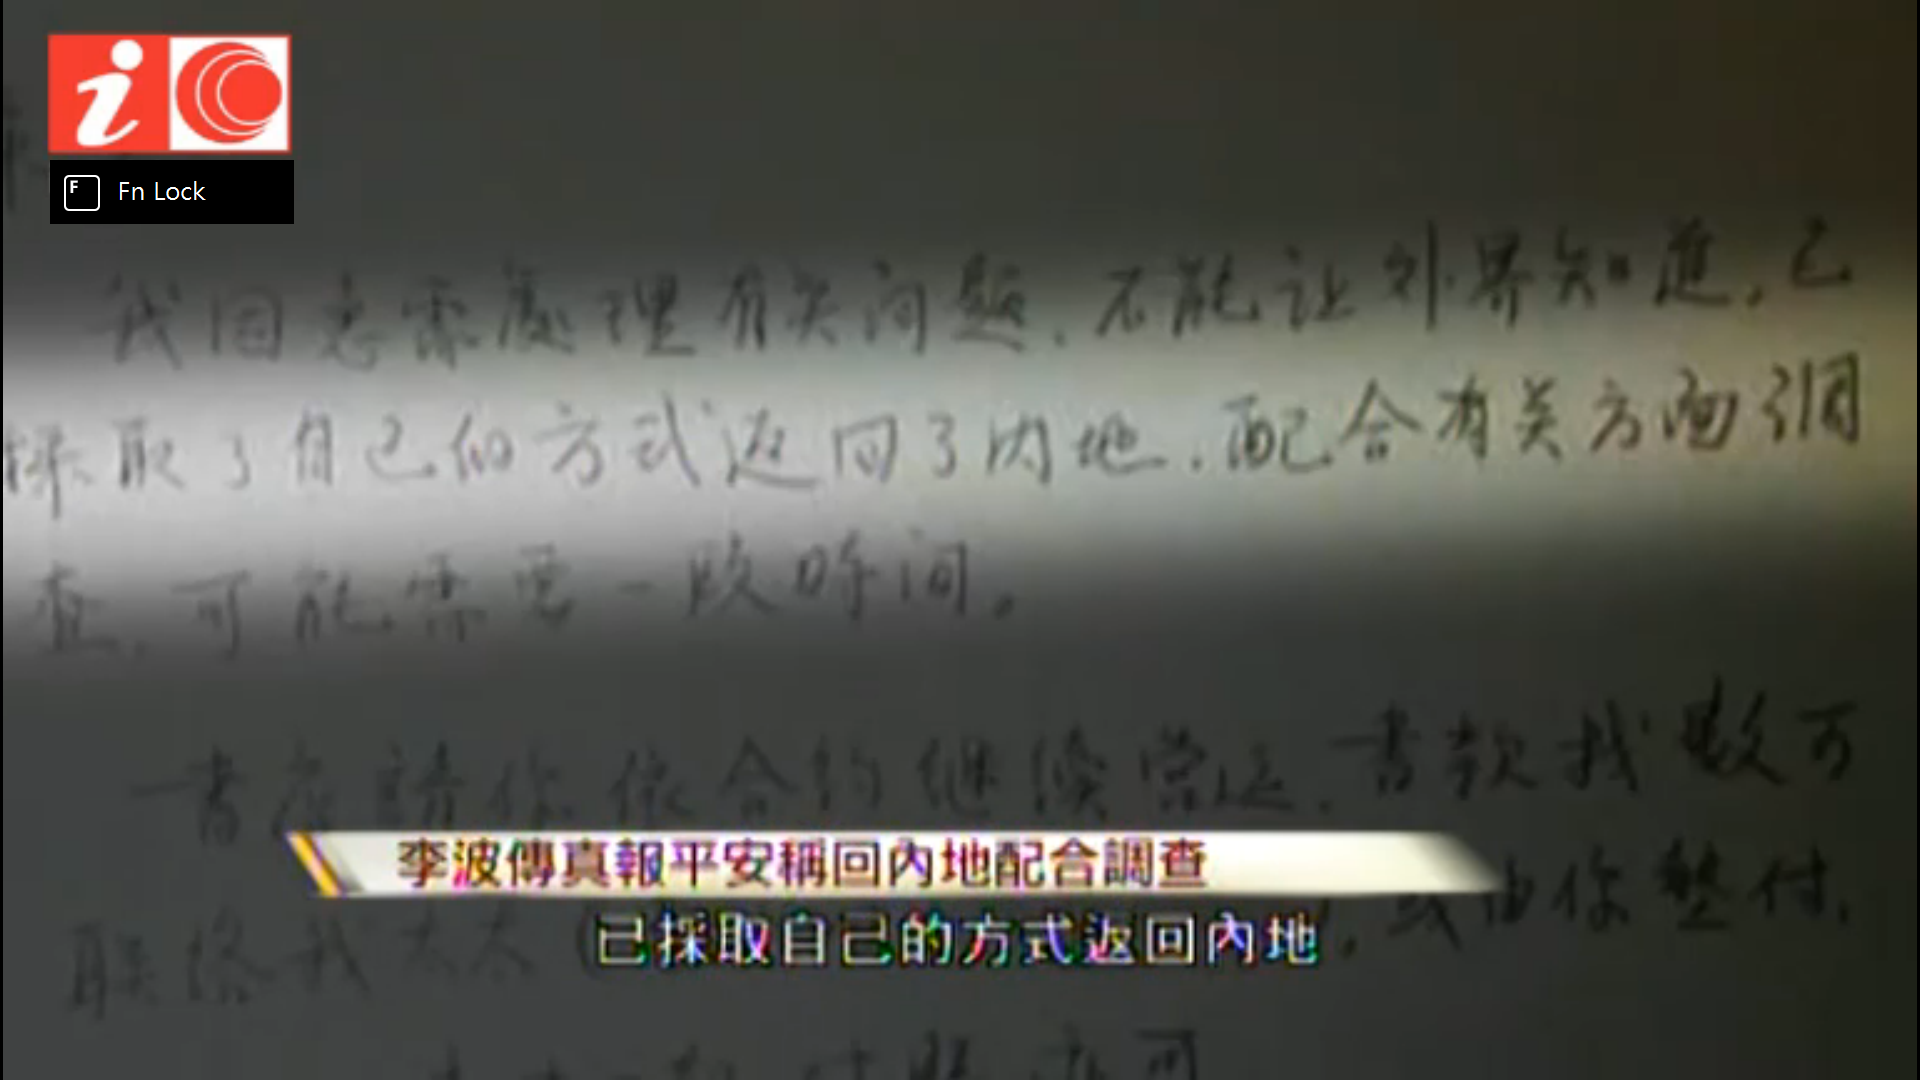 Fn Lock
我因急需處理有关问题,不能让外界知道,已
採取了自己的方式返回了内地,配合有关方面调
查,可能需要一段时间。
書店請你依合约继续营运,書款我数可
李波傳真報平安稱回內地配合調查
或由你墊付,
联络我太太
已採取自己的方式返回內地